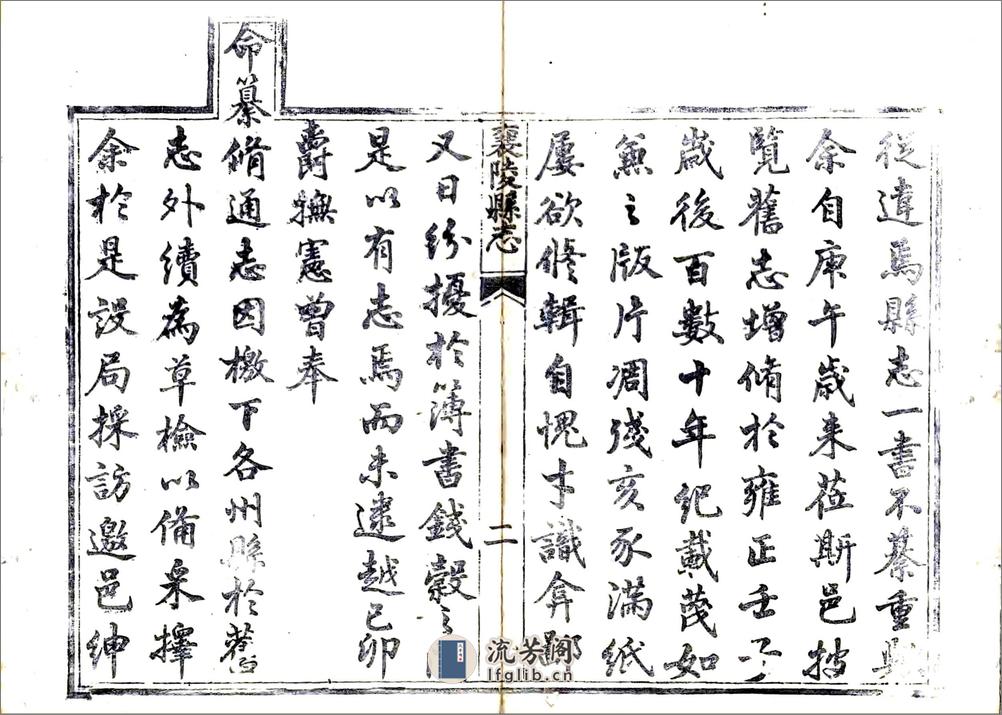 從違焉縣志一書不綦重與
余自庚午歲来莅斯邑披
覽舊志增脩於雍正壬子
嵗後百數十年紀載茂如
兼之版片凋殘亥豕滿紙
屢欲修輯自愧才識弇鄙
襄陵縣志
二
又日紛擾於簿書錢穀之
是以有志焉而未逮越己卯
爵撫憲曾奉
命纂脩通志因檄下各州縣於舊
志外續為草檢以備采擇
余於是設局採訪邀邑紳
流芳阁
lfglib.cn